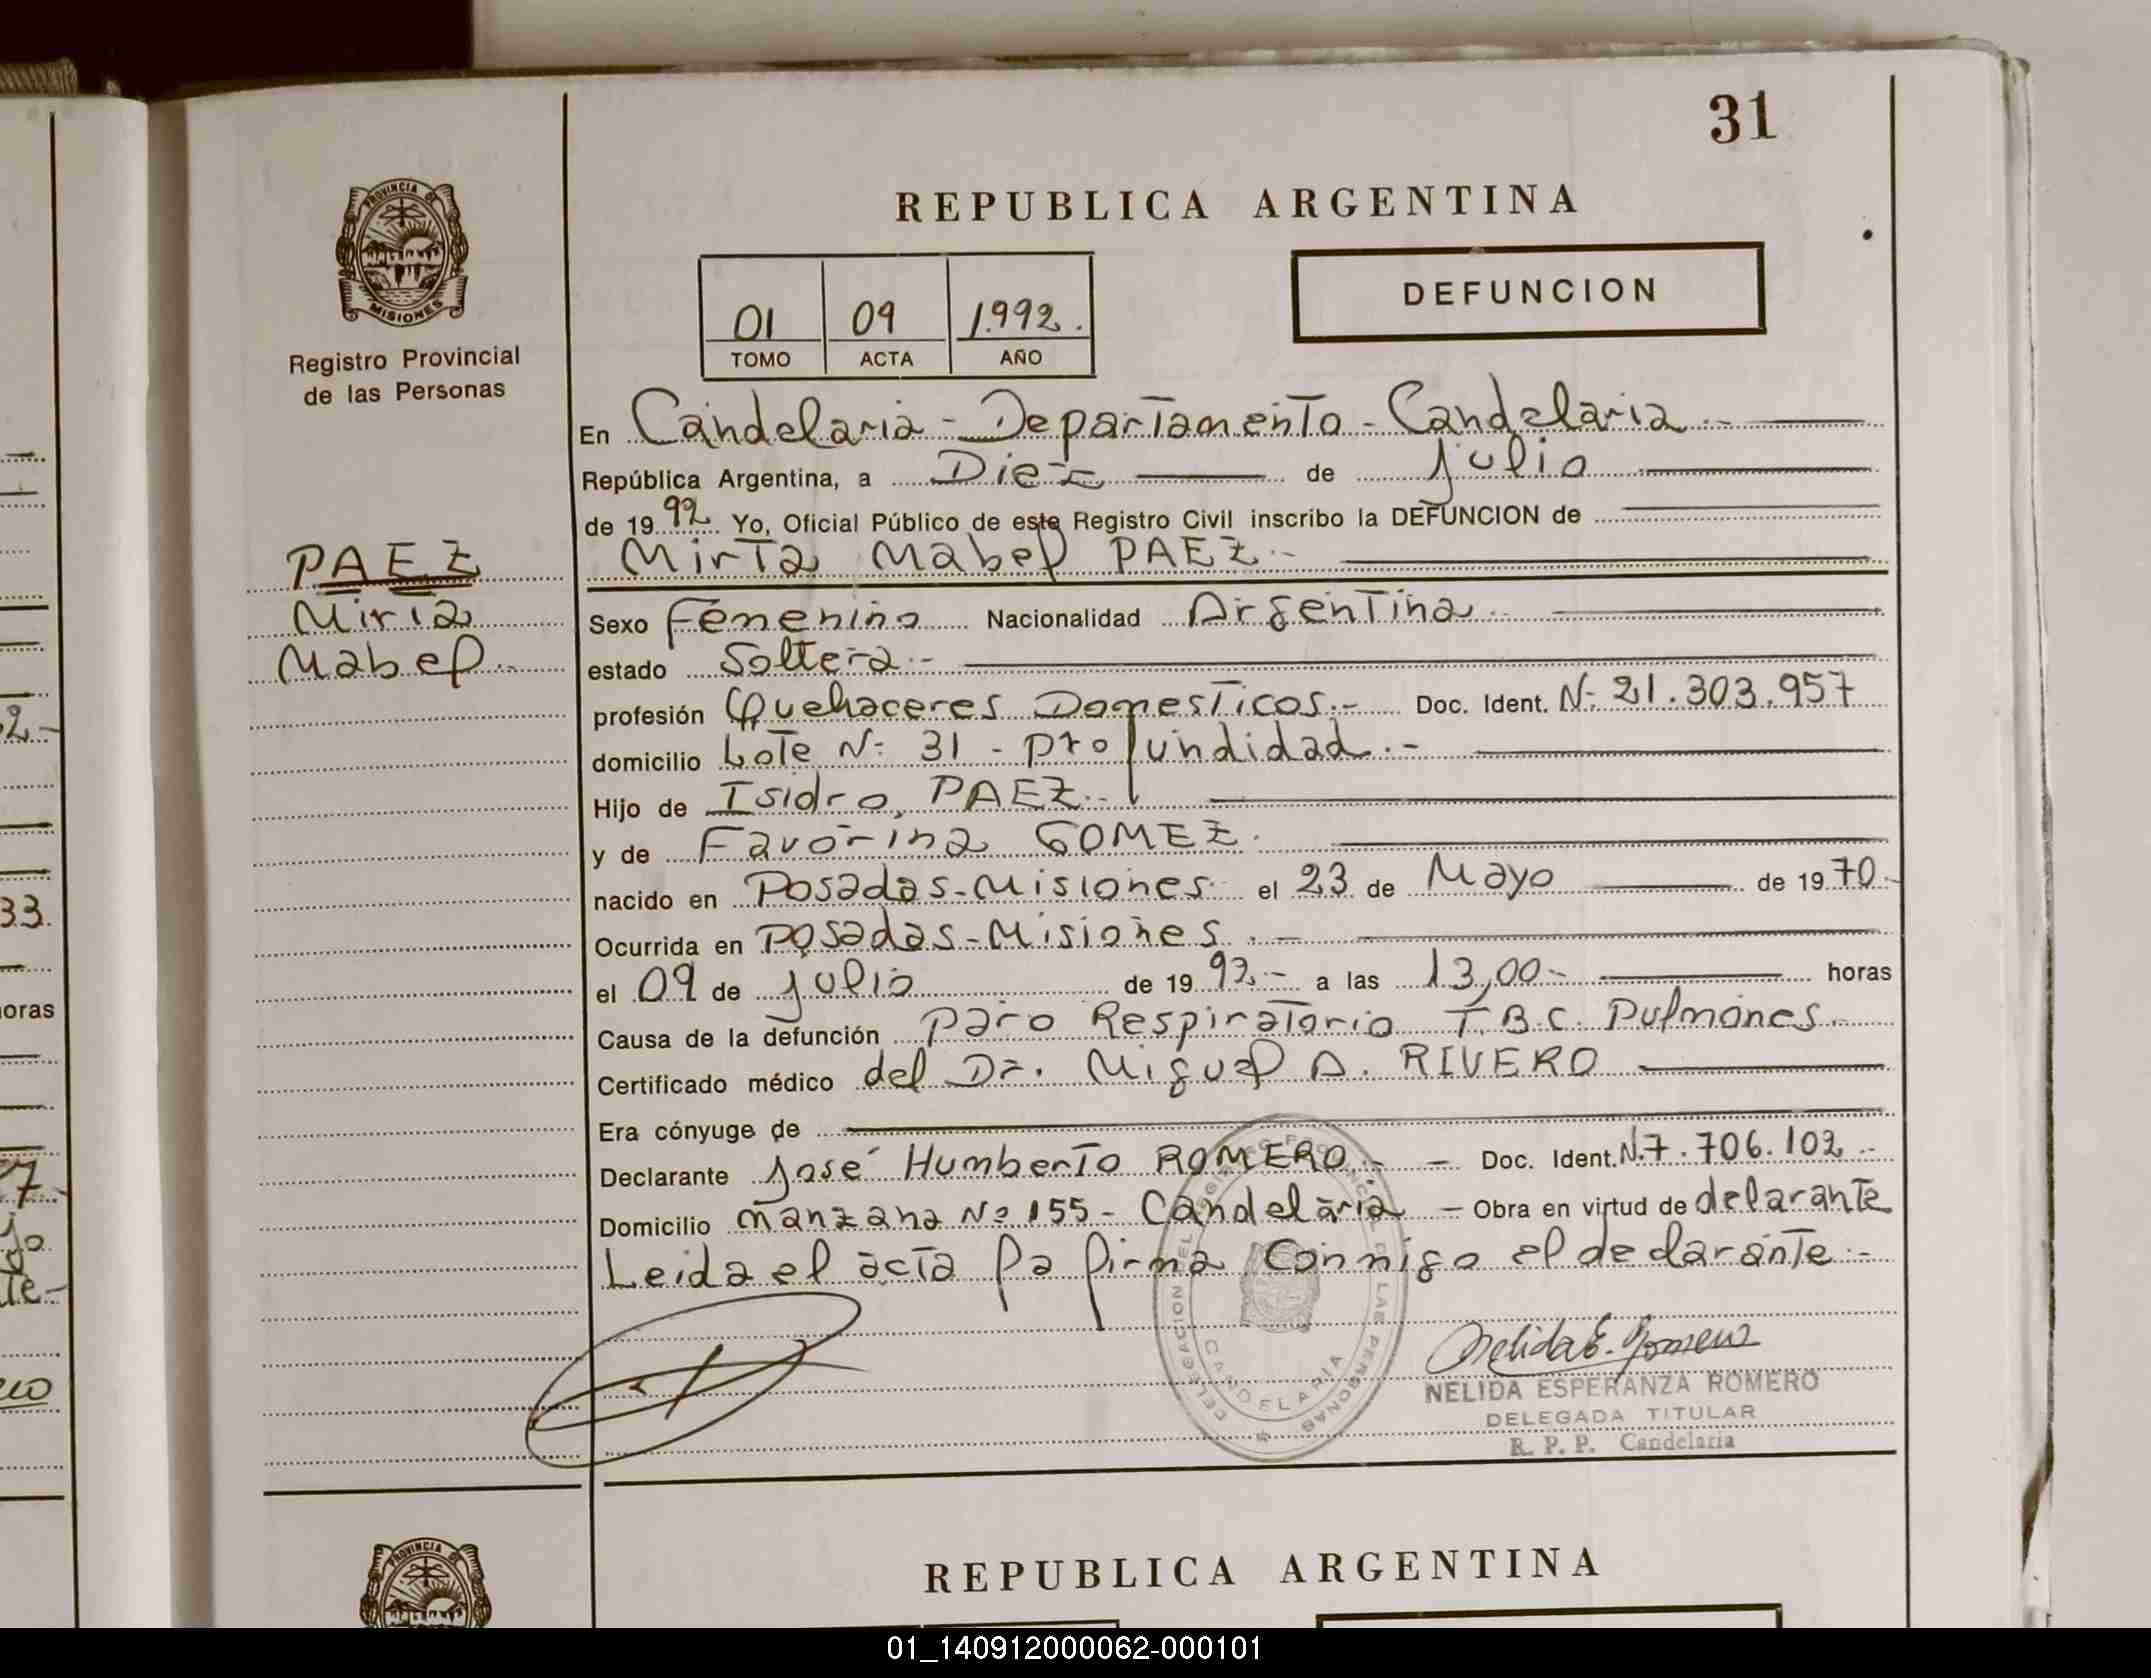 31
REPUBLICA ARGENTINA
PROVINCIA DE
MISIONES
Registro Provincial
de las Personas
DEFUNCION
01 09 1992.
TOMO ACTA AÑO
En Candelaria - Departamento - Candelaria.-
República Argentina, a Diez de Julio
de 1992 Yo, Oficial Público de este Registro Civil inscribo la DEFUNCION de
PAEZ
Mirta
Mabel.-
Mirta Mabel PAEZ.-
Sexo Femenino Nacionalidad Argentina.-
estado Soltera.-
profesión Quehaceres Domesticos.- Doc. Ident. Nº 21.303.957
domicilio Lote Nº 31 - Profundidad.-
Hijo de Isidro, PAEZ.-
y de Favorina GOMEZ.
nacido en Posadas-Misiones el 23 de Mayo de 1970.-
Ocurrida en Posadas-Misiones.-
el 09 de Julio de 1992.- a las 13,00.- horas
Causa de la defunción Paro Respiratorio T.B.C. Pulmones.-
Certificado médico del Dr. Miguel A. RIVERO
Era cónyuge de
Declarante José Humberto ROMERO.- - Doc. Ident. N.7.706.102.-
Domicilio manzana Nº 155 - Candelaria - Obra en virtud de delarante
Leida el acta la firma conmigo el declarante.-
DELEGACION DEL REGISTRO PROVINCIAL DE LAS PERSONAS
CANDELARIA
Nelida E. Romero
NELIDA ESPERANZA ROMERO
DELEGADA TITULAR
R. P. P. Candelaria
33.
horas
REPUBLICA ARGENTINA
PROVINCIA DE
01_140912000062-000101